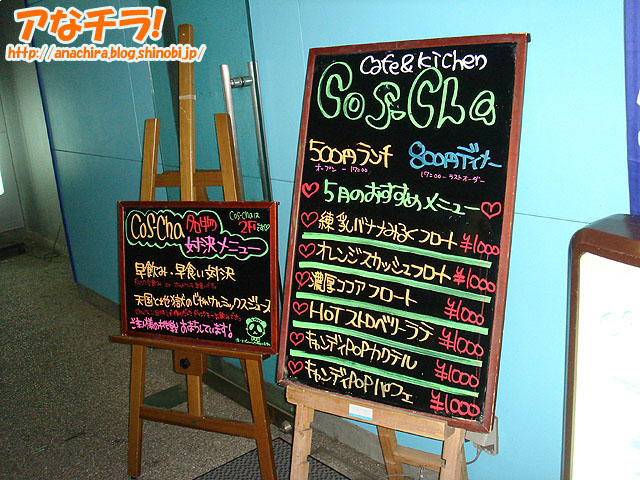 アなチラ!
http://anachira.blog.shinobi.jp/
Cafe & Kichen
Cos-Cha
500円ランチ
オープン〜17:00
800円ディナー
17:00〜ラストオーダー
5月のおすすめメニュー
練乳バナナみるくフロート ¥1000
オレンジスカッシュフロート ¥1000
濃厚ココアフロート ¥1000
HOTストロベリーラテ ¥1000
キャンディPOPカクテル ¥1000
キャンディPOPパフェ ¥1000
Cos-Cha
対決メニュー
Cos-Chaは
2Fです
早飲み・早食い対決
天国と地獄のじゃんけんミックスジュース
おまちしています!